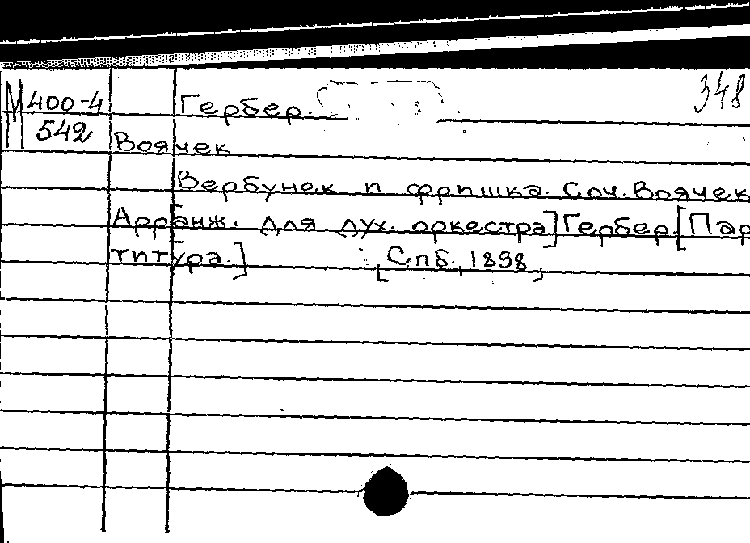 М 400-4 Гербер. 348
542
Воячек
Вербунек и фришка. Соч. Воячек
Арранж. для дух. оркестра] Гербер. [Пар
титура.] [Спб., 1898]